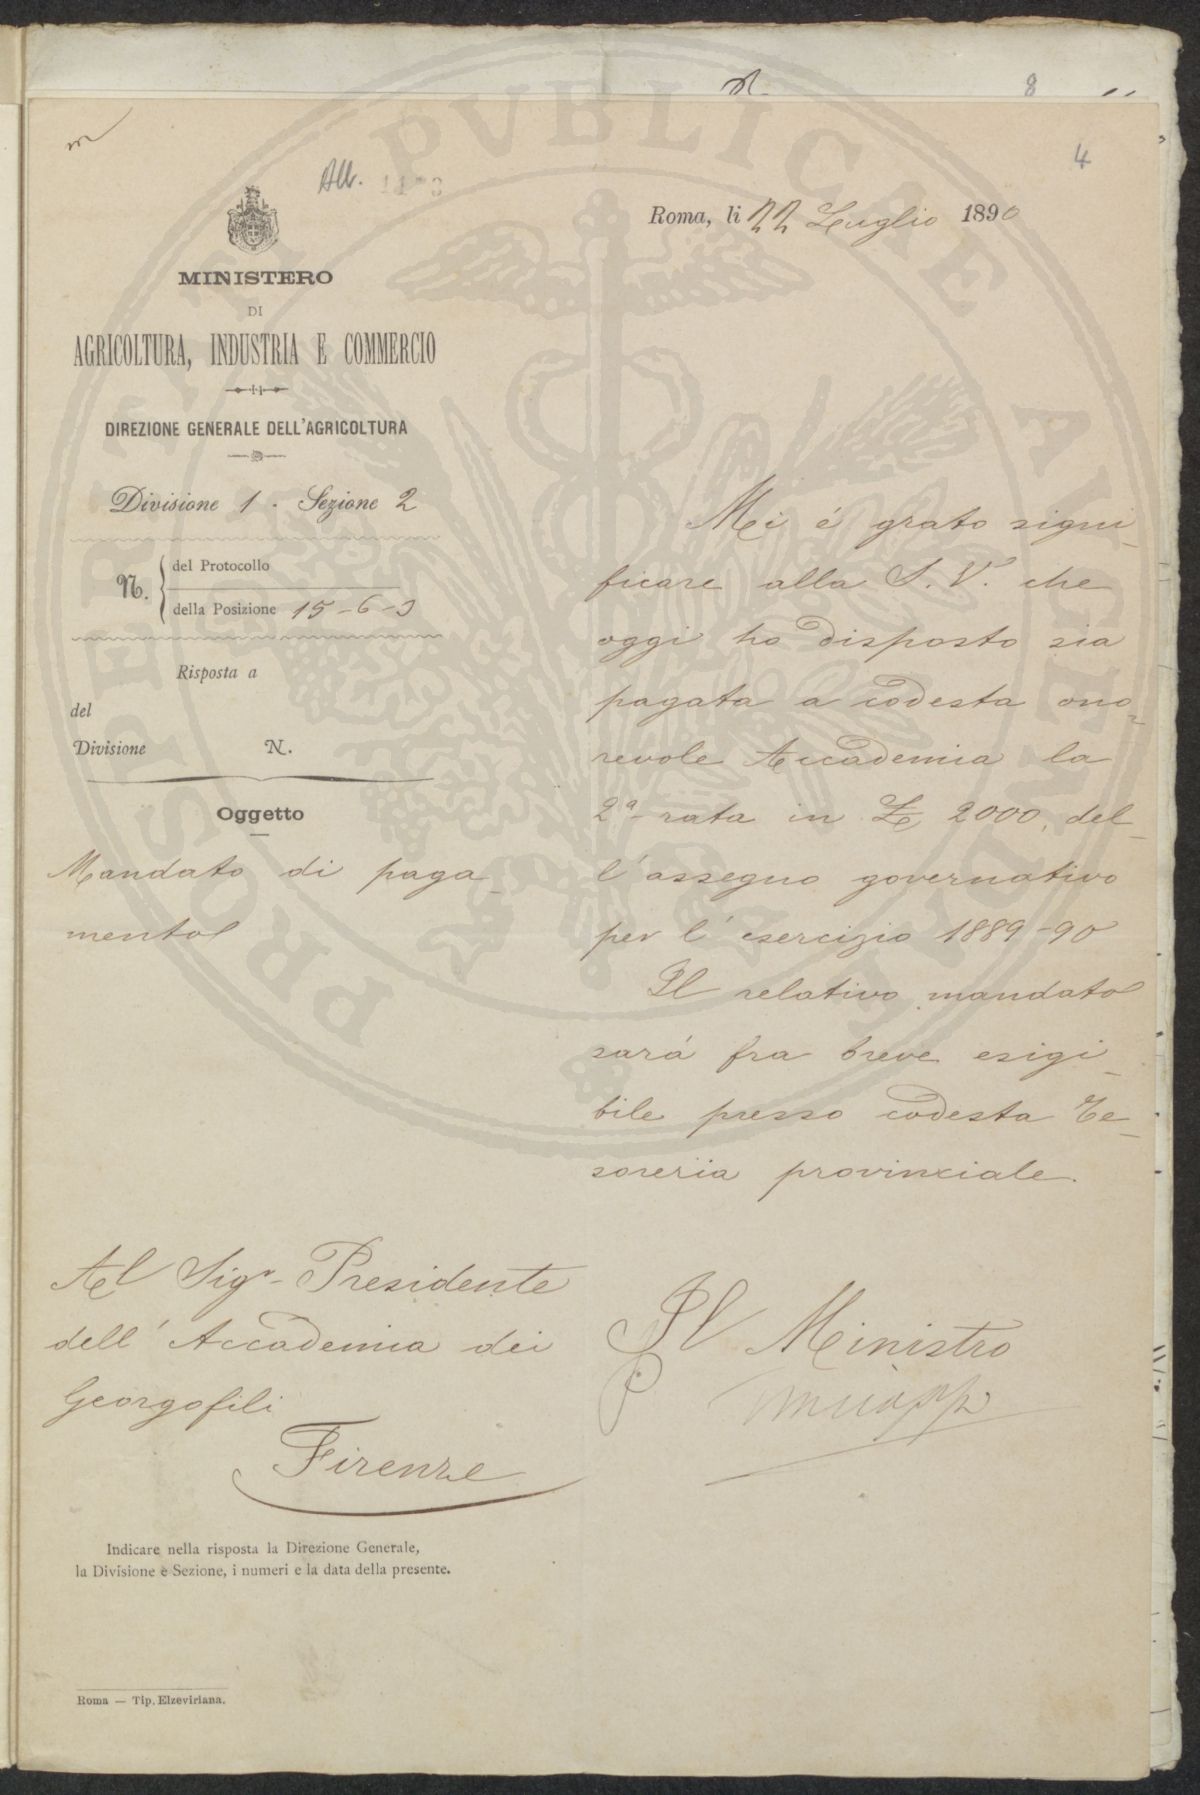 8
4
All.
Roma, li 22 Luglio 1890
MINISTERO
DI
AGRICOLTURA, INDUSTRIA E COMMERCIO
DIREZIONE GENERALE DELL'AGRICOLTURA
Divisione 1. Sezione 2
N. del Protocollo
della Posizione 15-6-3
Risposta a
del
Divisione N.
Oggetto
Mandato di paga_
mento
Mi é grato signi_
ficare alla S. V. che
oggi ho disposto sia
pagata a codesta ono_
revole Accademia la
2ª rata in £ 2000, del_
l'assegno governativo
per l'esercizio 1889-90
Il relativo mandato
sará fra breve esigi_
bile presso codesta Te_
soreria provinciale.
Al Sigr. Presidente
dell'Accademia dei
Georgofili
Firenze
Il Ministro
Indicare nella risposta la Direzione Generale,
la Divisione e Sezione, i numeri e la data della presente.
Roma — Tip. Elzeviriana.
PROSPERITATI PVBLICAE AVGENDAE